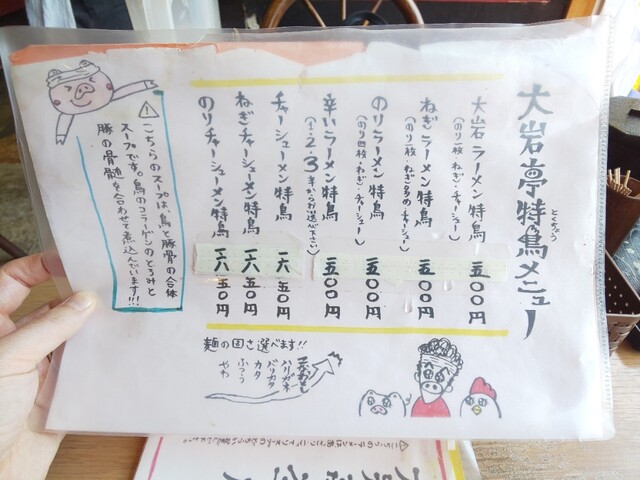 大岩亭特鳥メニュー
とくちょう
大岩ラーメン特鳥 一五〇〇円
(のり一枚・ねぎ・チャーシュー)
ねぎラーメン特鳥 一五〇〇円
(のり一枚・ねぎ多め・チャーシュー)
のりラーメン特鳥 一五〇〇円
(のり四枚・ねぎ・チャーシュー)
辛いラーメン特鳥 一五〇〇円
(1・2・3辛からお選べ下さい)
チャーシューメン特鳥 一六五〇円
ねぎチャーシューメン特鳥 一六五〇円
のりチャーシューメン特鳥 一六五〇円
こちらのスープは、鳥と豚骨の合体
スープです。鳥のコラーゲンのとろみと
豚の骨髄を合わせて煮込んでいます!!!
麺の固さ選べます!!
ハリガネ
バリカタ
カタ
ふつう
やわ